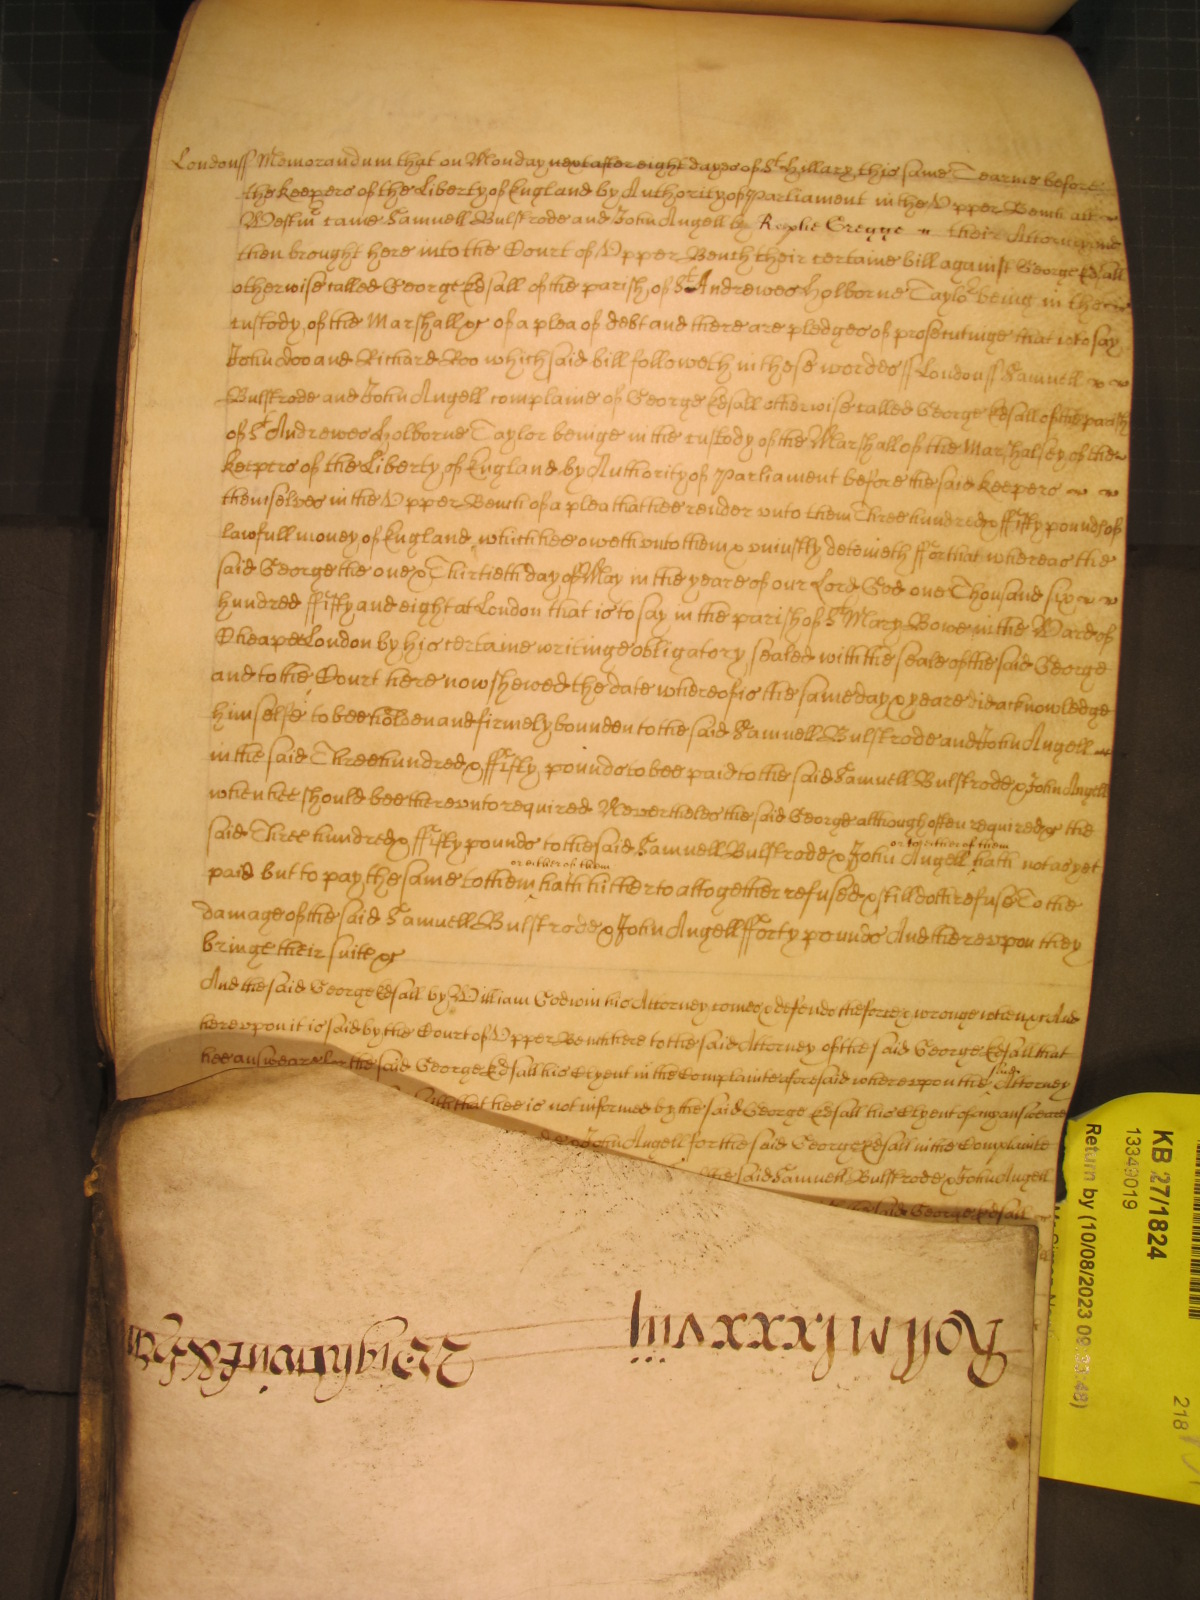 Londonss Memorandum that on Monday next after eight dayes of St Hillary this same Tearme before
the keepers of the Liberty of England by Authority of Parliament in the Upper Bench att
Westmr came Samuell Bulstrode and John Angell by Raphe Gregge their Attorny and
then brought here into the Court of Upper Bench their certaine bill against George Edsall
otherwise called George Edsall of the parish of St Andrewes Holborne Taylor being in the
custody of the Marshall &c of a plea of debt and there are pledges of prosecutinge that is to say
John Doo and Richard Roo which said bill followeth in these wordes ss Londonss Samuell
Bulstrode and John Angell complaine of George Edsall otherwise called George Edsall of the parish
of St Andrewes Holborne Taylor beinge in the custody of the Marshall of the Marshalsey of the
keepers of the Liberty of England by Authority of Parliament before the said keepers
themselves in the Upper Bench of a plea that hee render unto them Three hundred & ffifty pounds of
lawfull money of England which hee oweth unto them & uniustly deteineth ffor that whereas the
said George the one & Thirtieth day of May in the yeare of our Lord God one Thousand six
hundred ffifty and eight at London that is to say in the parish of St Mary Bowe in the Ward of
Cheape London by his certaine writinge obligatory sealed with the seale of the said George
and to the Court here now shewed the date whereof is the same day & yeare did acknowledge
himselfe to bee holden and firmely bounden to the said Samuell Bulstrode and John Angell
in the said Three hundred & ffifty pounds to bee paid to the said Samuell Bulstrode & John Angell
when hee should bee thereunto required Neverthelesse the said George although often required &c the
said Three hundred & ffifty pounds to the said Samuell Bulstrode & John Angell or to either of them hath not as yet
paid but to pay the same to them or either of them hath hitherto altogether refused & still doth refuse To the
damage of the said Samuell Bulstrode & John Angell fforty pounds And thereupon they
bringe their suite &c
And the said George Edsall by William Godwin his Attorney comes & defends the force & wronge when &c And
hereupon it is said by the Court of Upper Bench here to the said Attorney of the said George Edsall that
hee answeare for the said George Edsall his Clyent in the Complainte aforesaid whereupon the said Attorney
saith that hee is not informed by the said George Edsall his Clyent of any answeare
& John Angell for the said George Edsall in the Complainte
the said Samuell Bulstrode & John Angell
the said George Edsall
Roll Mlxxxviij
KB 27/1824
13349019
Return by (10/08/2023 09:33:49)
218